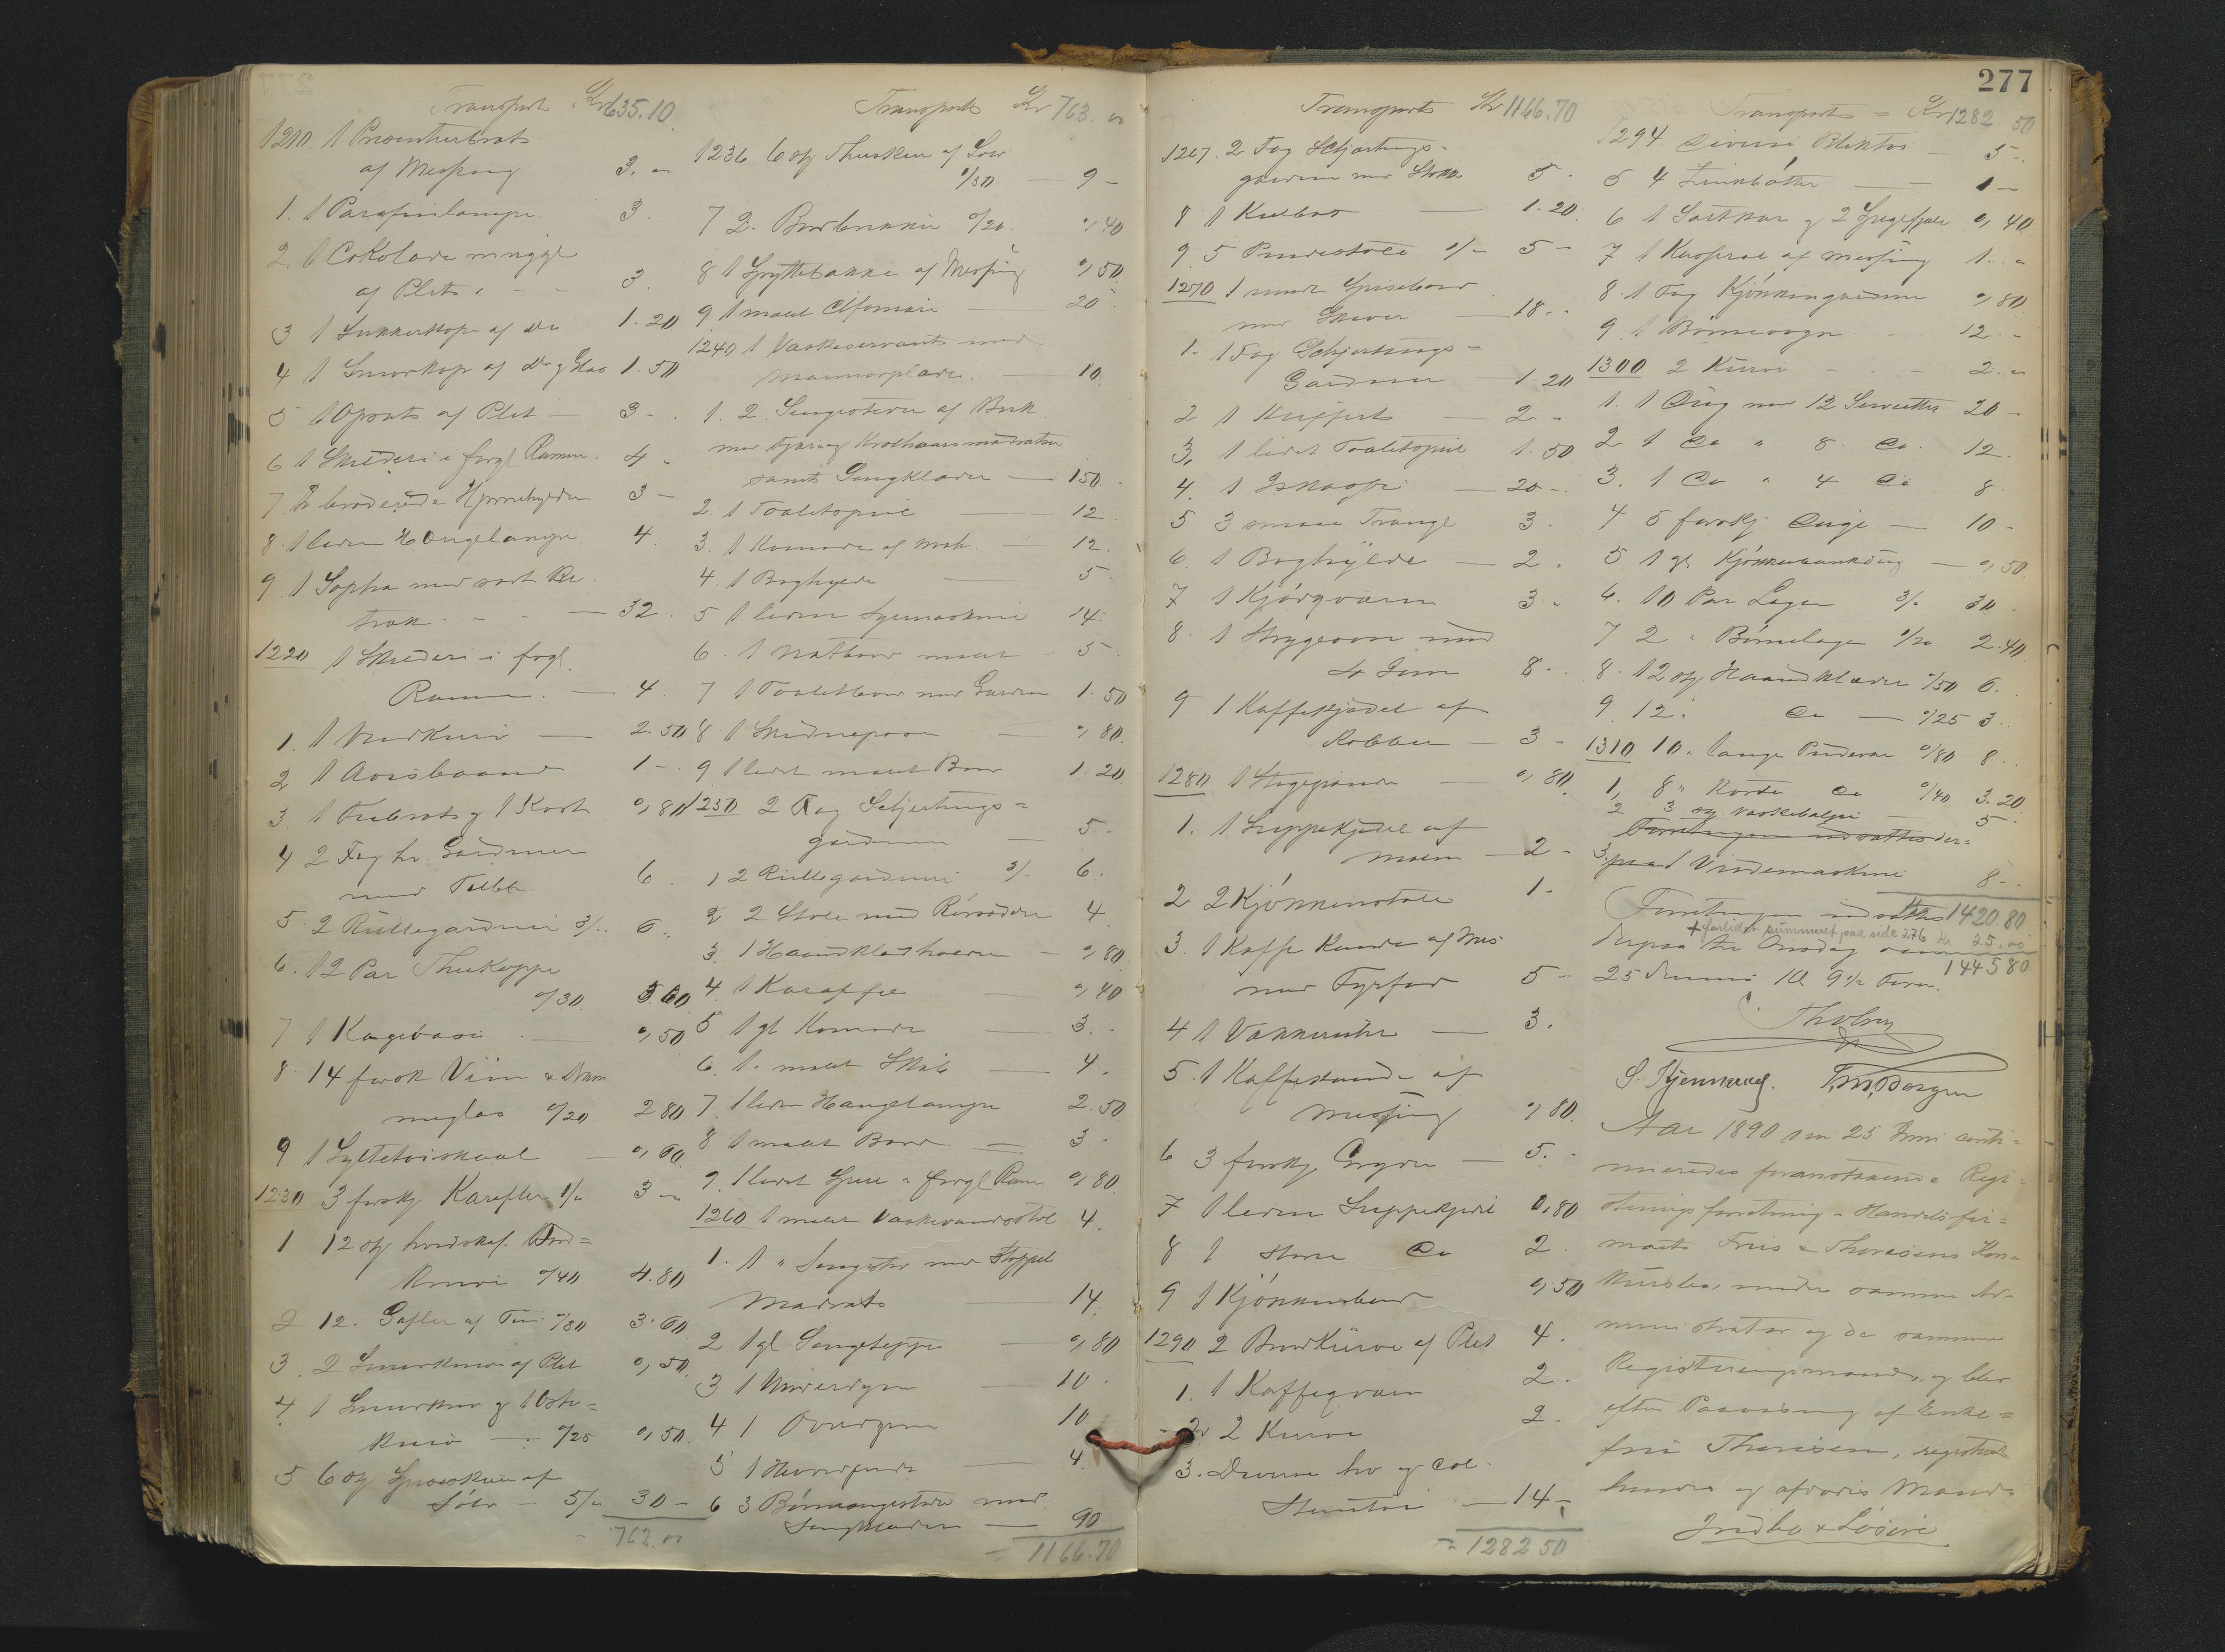 Transport Kr 635.10
1210. 1 Presentierbrat
af Messing 3. "
1. 1 Parafinlampe 3.
2. 1 Cokolade mugge
af Plet " - - 3.
3 1 Sukkerkop af Do 1.20
4 1 Smørkop af Do g Glas 1.50
5 1 Opsats af Plet — 3 -
6 1 Skilderi i forgl Ramme. 4 "
7. broderede Hjørnehylder 3 -
8. 1 liden Hængelampe 4.
9. 1 Sopha med sort Be
træk - - — 32.
1220 1 Skilderi i forgl.
Ramme. — 4.
1. 1 Vedkurv — 2.50
2 1 Avisbaand 1 -
3. 1 Træbrat g 1 Kost 0,80
4 2 Fag hv. Gardiner
med Tilbh. 6.
5. 2 Rullegardiner 3/- 6.
6. 12 Par Thekopper
0/30 3.60
7 1 Kagevase — 0,50
8. 14 forsk Viin & Dram
meglas 0/20 2.80
9 1 Syltetøiskaal — 0,60
1230 3 forskj Karafler 1/" 3 -
1 12 stk hvidskaf. Bord=
knive 0/40 4.80
2 12. Gafler af Tin 0/30 3.60
3. 2 Smørknive af Plet 0,50.
4 1 Smørkniv g 1 Oste=
kniv — 0/25 0,50.
5 6 stk Spiseskeer af
Sølv — 5/" 30 -
= 763.00
Transport Kr 763. "
1236. 6 stk Theskeer af Sølv
1/50 — 9 -
7 2. Bordbrikker 0/20. 0,40
8 1 Spyttebakke af Messing 0,50.
9 1 malet Chifonniere — 20 -
1240 1 Vaskeservant med
marmorplade. — 10.
1. 2. Sengesteder af Birk
med Fjær og Krølhaarsmadratser
samt Sengklæder — 150.
2. 1 Toaletspeil — 12
3. 1 Komode af Mah — 12.
4. 1 Boghylde — 5.
5 1 liden Symaskine 14.
6. 1 Natbord malet - 5.
7 1 Toaletbord med Gardin 1.50
8 1 — 0,80.
9 1 lidet malet Bord 1.20
1250 2 Fag Schjertings=
gardiner — 5.
1 2 Rullegardiner 3/- 6.
2 2 Stole med Rørsæder 4.
3. 1 Haandklædholder — 0,80
4 1 Karaffel — 0,40
5 1 gl Komode — 3. -
6. 1. malet Skab — 4.
7. 1 liden Hængelampe 2.50
8 1 malet Bord — 3 -
9. 1 lidet Speil i forgl Ram 0,80
1260 1 malet Vaskevandsstol 4.
1. 1 " Sengsted med Stoppet
Madrats — 14.
2 1 gl Sengeteppe — 0,80
3 1 Underdyne — 10.
4 1 Overdyne 10
5 1 Hovedpude — 4.
6 3 Børnesengesteder med
Sengklæder — 90
= 1166.70
277
Transport Kr 1166.70
1267. 2 Fag Schjertings-
gardiner med Stokke 5.
8 1 Kulbox — 1.20.
9. 5 Pindestole 1/- 5 -
1270 1 rundt Spisebord
med Skiver — 18. -
1. 1 Fag Schjertings=
Gardiner — 1.20
2 1 Kuffert — 2 -
3. 1 lidet Toaletspeil 1.50
4. 1 Isskaap — 20 -
5 3 smaa 3.
6. 1 Boghylde — 2.
7 1 Kjødqværn 3 -
8. 1 Strygeovn med
4 Jern 8.
9 1 Kaffekjedel af
Kobber — 3 -
1280 1 Stegepande — 0,80.
1. 1 Suppekjedel af
malm — 2 -
2 2 Kjøkkenstole 1 -
3. 1 Kaffe Kande af Mes
med Fyrfad 5 -
4 1 Vækkeruhr — 3.
5. 1 Kaffekande af
messing 0,80.
6 3 forskj Gryder — 5. -
7 1 liden Suppekjedel 0,80
8 1 stor Do 2.
9 1 Kjøkkenbord 0,50
1290 2 Brødkurve af Plet 4.
1. 1 Kaffeqværn 2.
2 2 Kurve 2.
3. Diverse hv og Col.
Stentøi — 14 -
= 1282.50
Transport = Kr 1282.50
1294 Diverse Bliktøi — 5 -
5 4 Zinkbøtter — 1 -
6 1 Saltkar g 2 0,40
7 1 Kasserol af messing 1. "
8. 1 Fag Kjøkkengardiner 0,80
9. 1 Børnevogn — 12 -
1300 2 Kurve - - - 2. "
1. 1 Dug med 12 Servietter 20 -
2 1 Do " 8 Do. 12.
3. 1 Do " 4 Do 8.
4 5 forskj Duge — 10 -
5 1 gl Kjøkkenbænkdug — 0,50.
6. 10 Par Lagen 3/- 30.
7 2 " Børnelagen 1/20 2.40
8. 12 stk Haandklæder 0/50 6.
9 12. Do — 0/25 3.
1310 10. lange Pudevar 0/80 8.
1, 8 " korte Do 0/40 3.20
2 3 stk Vaskebaljer — 5.
Forretningen udsattes der=
3. paa 1 Vridemaskine 8 -
Kr 1420.80
Forretningen udsattes
+ forlidet summeret paa side 276 Kr 25.00
derpaa til Onsdag
1445 80
25 Juni Kl 9 1/2 Form.
S. Stjernerud. T. M. Borgen
Aar 1890 den 25 Juni conti=
nueredes foranstaaende Regi=
streringsforretning i Handelsfir=
maet Friis & Thoresens Kon=
kursbo, under samme Ad=
ministrator og de samme
Registreringsmænd, og blev
efter Paavisning af Enke=
fru Thoresen, registreret
hendes og afdøde Mands
Indbo & Løsøre